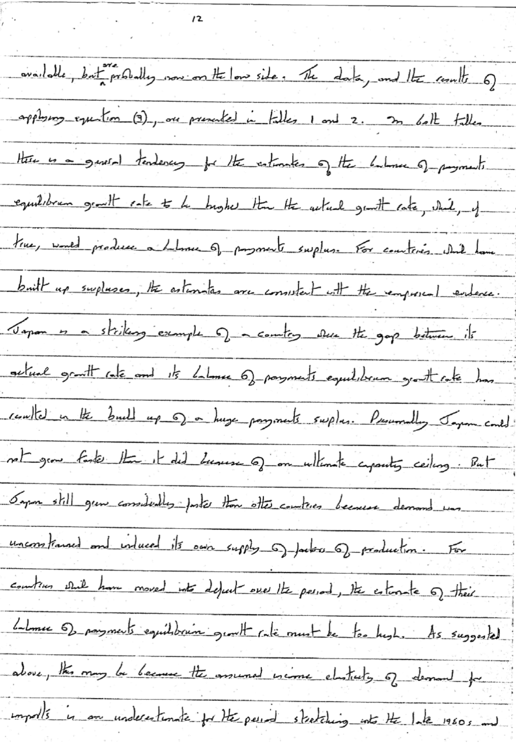 12
available, but are probably now on the low side. The data, and the results of
applying equation (3), are presented in tables 1 and 2. In both tables
there is a general tendency for the estimates of the balance of payments
equilibrium growth rate to be higher than the actual growth rate, which, if
true, would produce a balance of payments surplus. For countries which have
built up surpluses, the estimates are consistent with the empirical evidence.
Japan is a striking example of a country where the gap between its
actual growth rate and its balance of payments equilibrium growth rate has
resulted in the build up of a huge payments surplus. Presumably Japan could
not grow faster than it did because of an ultimate capacity ceiling. But
Japan still grew considerably faster than other countries because demand was
unconstrained and induced its own supply of factors of production. For
countries which have moved into deficit over the period, the estimate of their
balance of payments equilibrium growth rate must be too high. As suggested
above, this may be because the assumed income elasticity of demand for
imports is an underestimate for the period stretching into the late 1960s and